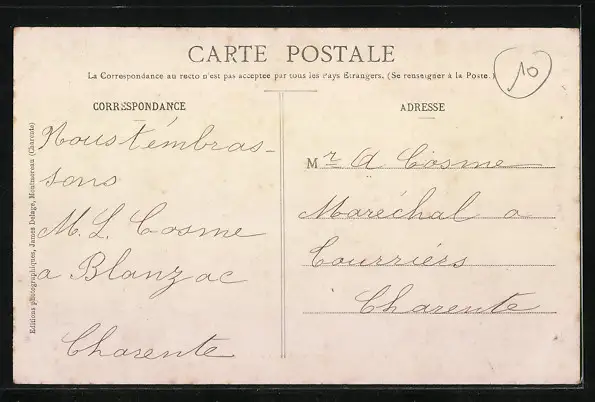 CARTE POSTALE
La Correspondance au recto n'est pas acceptée par tous les Pays Etrangers. (Se renseigner à la Poste.)
10
CORRESPONDANCE
Nous t'embras-
sons
M. L. Cosme
a Blanzac
Charente
ADRESSE
Mr A Cosme
Maréchal a
Courriérs
Charente
Editions photographiques, James Delage, Montmoreau (Charente)